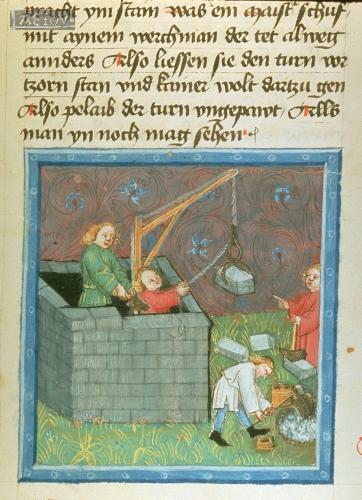 macht ym stain was ein maist schus
mit aynem werchman der tet alweg
annders Also liessen sie den turn vor
tzorn stan und kainer wolt dartzu gen
Also pelaib der turn ungepawt Alls
man yn noch mag sehen